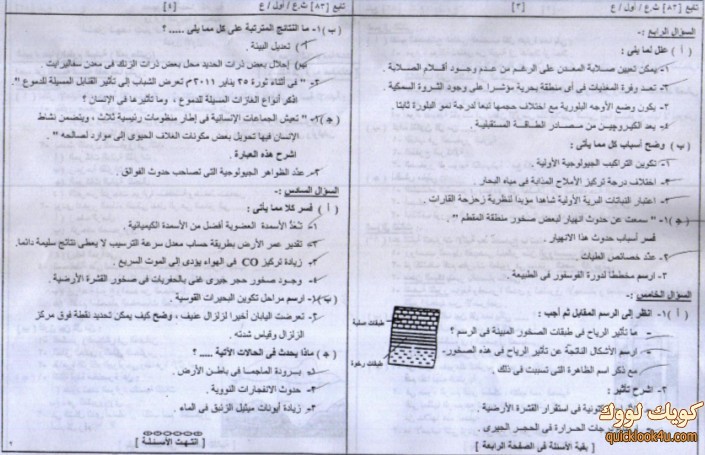 تابع [٨٣] ث.ع / أول / ع
[٣]
السؤال الرابع :-
( أ ) علل لما يلى :
١- يمكن تعيين صلابة المعدن على الرغم من عدم وجود أقلام الصلابة .
٢- تعد وفرة المغذيات فى أى منطقة بحرية مؤشرا على وجود الثروة السمكية .
٣- يكون وضع الأوجه البلورية مع اختلاف حجمها تبعا لدرجة نمو البلورة ثابتا .
٤- يعد الهيدروجين من مصادر الطاقة المستقبلية .
( ب ) وضح أسباب كل مما يأتى :
١- تكوين التراكيب الجيولوجية الأولية .
٢- اختلاف درجة تركيز الأملاح المذابة فى مياه البحار .
٣- اعتبار النباتات البرية الأولية شاهدا مؤيدا لنظرية زحزحة القارات .
( جـ ) ١- " سمعت عن حدوث انهيار لبعض صخور منطقة المقطم " .
فسر أسباب حدوث هذا الانهيار .
٢- عدد خصائص الطيات .
٣- ارسم مخططا لدورة الفوسفور فى الطبيعة .
السؤال الخامس :-
( أ ) ١- انظر إلى الرسم المقابل ثم أجب :
- ما تأثير الرياح فى طبقات الصخور المبينة فى الرسم ؟
- ارسم الأشكال الناتجة عن تأثير الرياح فى هذه الصخور
مع ذكر اسم الظاهرة التى تسببت فى ذلك .
طبقات صلبة
طبقات رخوة
٢- اشرح تأثير :
فى استقرار القشرة الأرضية .
درجات الحرارة فى الحجر الجيرى .
[ بقية الأسئلة فى الصفحة الرابعة ]
تابع [٨٣] ث.ع / أول / ع
[٤]
( ب ) ١- ما النتائج المترتبة على كل مما يلى ..... ؟
تعديل البيئة .
إحلال بعض ذرات الحديد محل بعض ذرات الزنك فى معدن سفاليرايت .
٢- " فى أثناء ثورة ٢٥ يناير ٢٠١١م تعرض الشباب إلى تأثير القنابل المسيلة للدموع " .
اذكر أنواع الغازات المسيلة للدموع ، وما تأثيرها فى الإنسان ؟
( جـ ) ١- " تعيش الجماعات الإنسانية فى إطار منظومات رئيسية ثلاث ، ويتضمن نشاط
الإنسان فيها تحويل بعض مكونات الغلاف الحيوى إلى موارد لصالحه " .
اشرح هذه العبارة .
٢- عدد الظواهر الجيولوجية التى تصاحب حدوث الفوالق .
السؤال السادس :-
( أ ) فسر كلا مما يأتى :
١- تُعَدُّ الأسمدة العضوية أفضل من الأسمدة الكيميائية .
٢- تقدير عمر الأرض بطريقة حساب معدل سرعة الترسيب لا يعطى نتائج سليمة دائما.
٣- زيادة تركيز CO فى الهواء يؤدى إلى الموت السريع .
٤- وجود صخور حجر جيرى غنى بالحفريات فى صخور القشرة الأرضية .
( ب ) ١- ارسم مراحل تكوين البحيرات القوسية .
٢- تعرضت اليابان أخيرا لزلزال عنيف ، وضح كيف يمكن تحديد نقطة فوق مركز
الزلزال وقياس شدته .
( جـ ) ماذا يحدث فى الحالات الآتية ..... ؟
١- برودة الماجما فى باطن الأرض .
٢- حدوث الانفجارات النووية .
٣- زيادة أيونات ميثيل الزئبق فى الماء .
[ انتهت الأسئلة ]
كويك لووك
quicklook4u.com